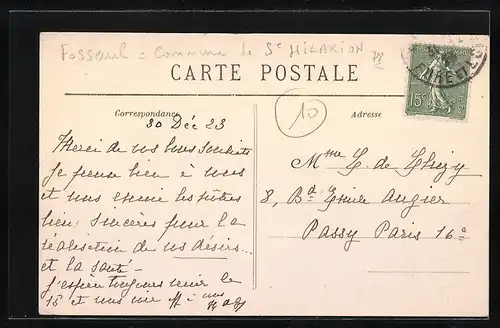 Fosseuil = Commune de St HILARION
CARTE POSTALE
Correspondance
Adresse
10
15c
EURE ET
30 Déc 23
Merci de vos bons souhaits
Je pense bien à vous
et vous envoie les nôtres
bien sincères pour la
réalisation de vos désirs
et la santé -
J'espère toujours venir le
18 et vous
Mme L. de
8, Bd Emile Augier
Passy Paris 16e